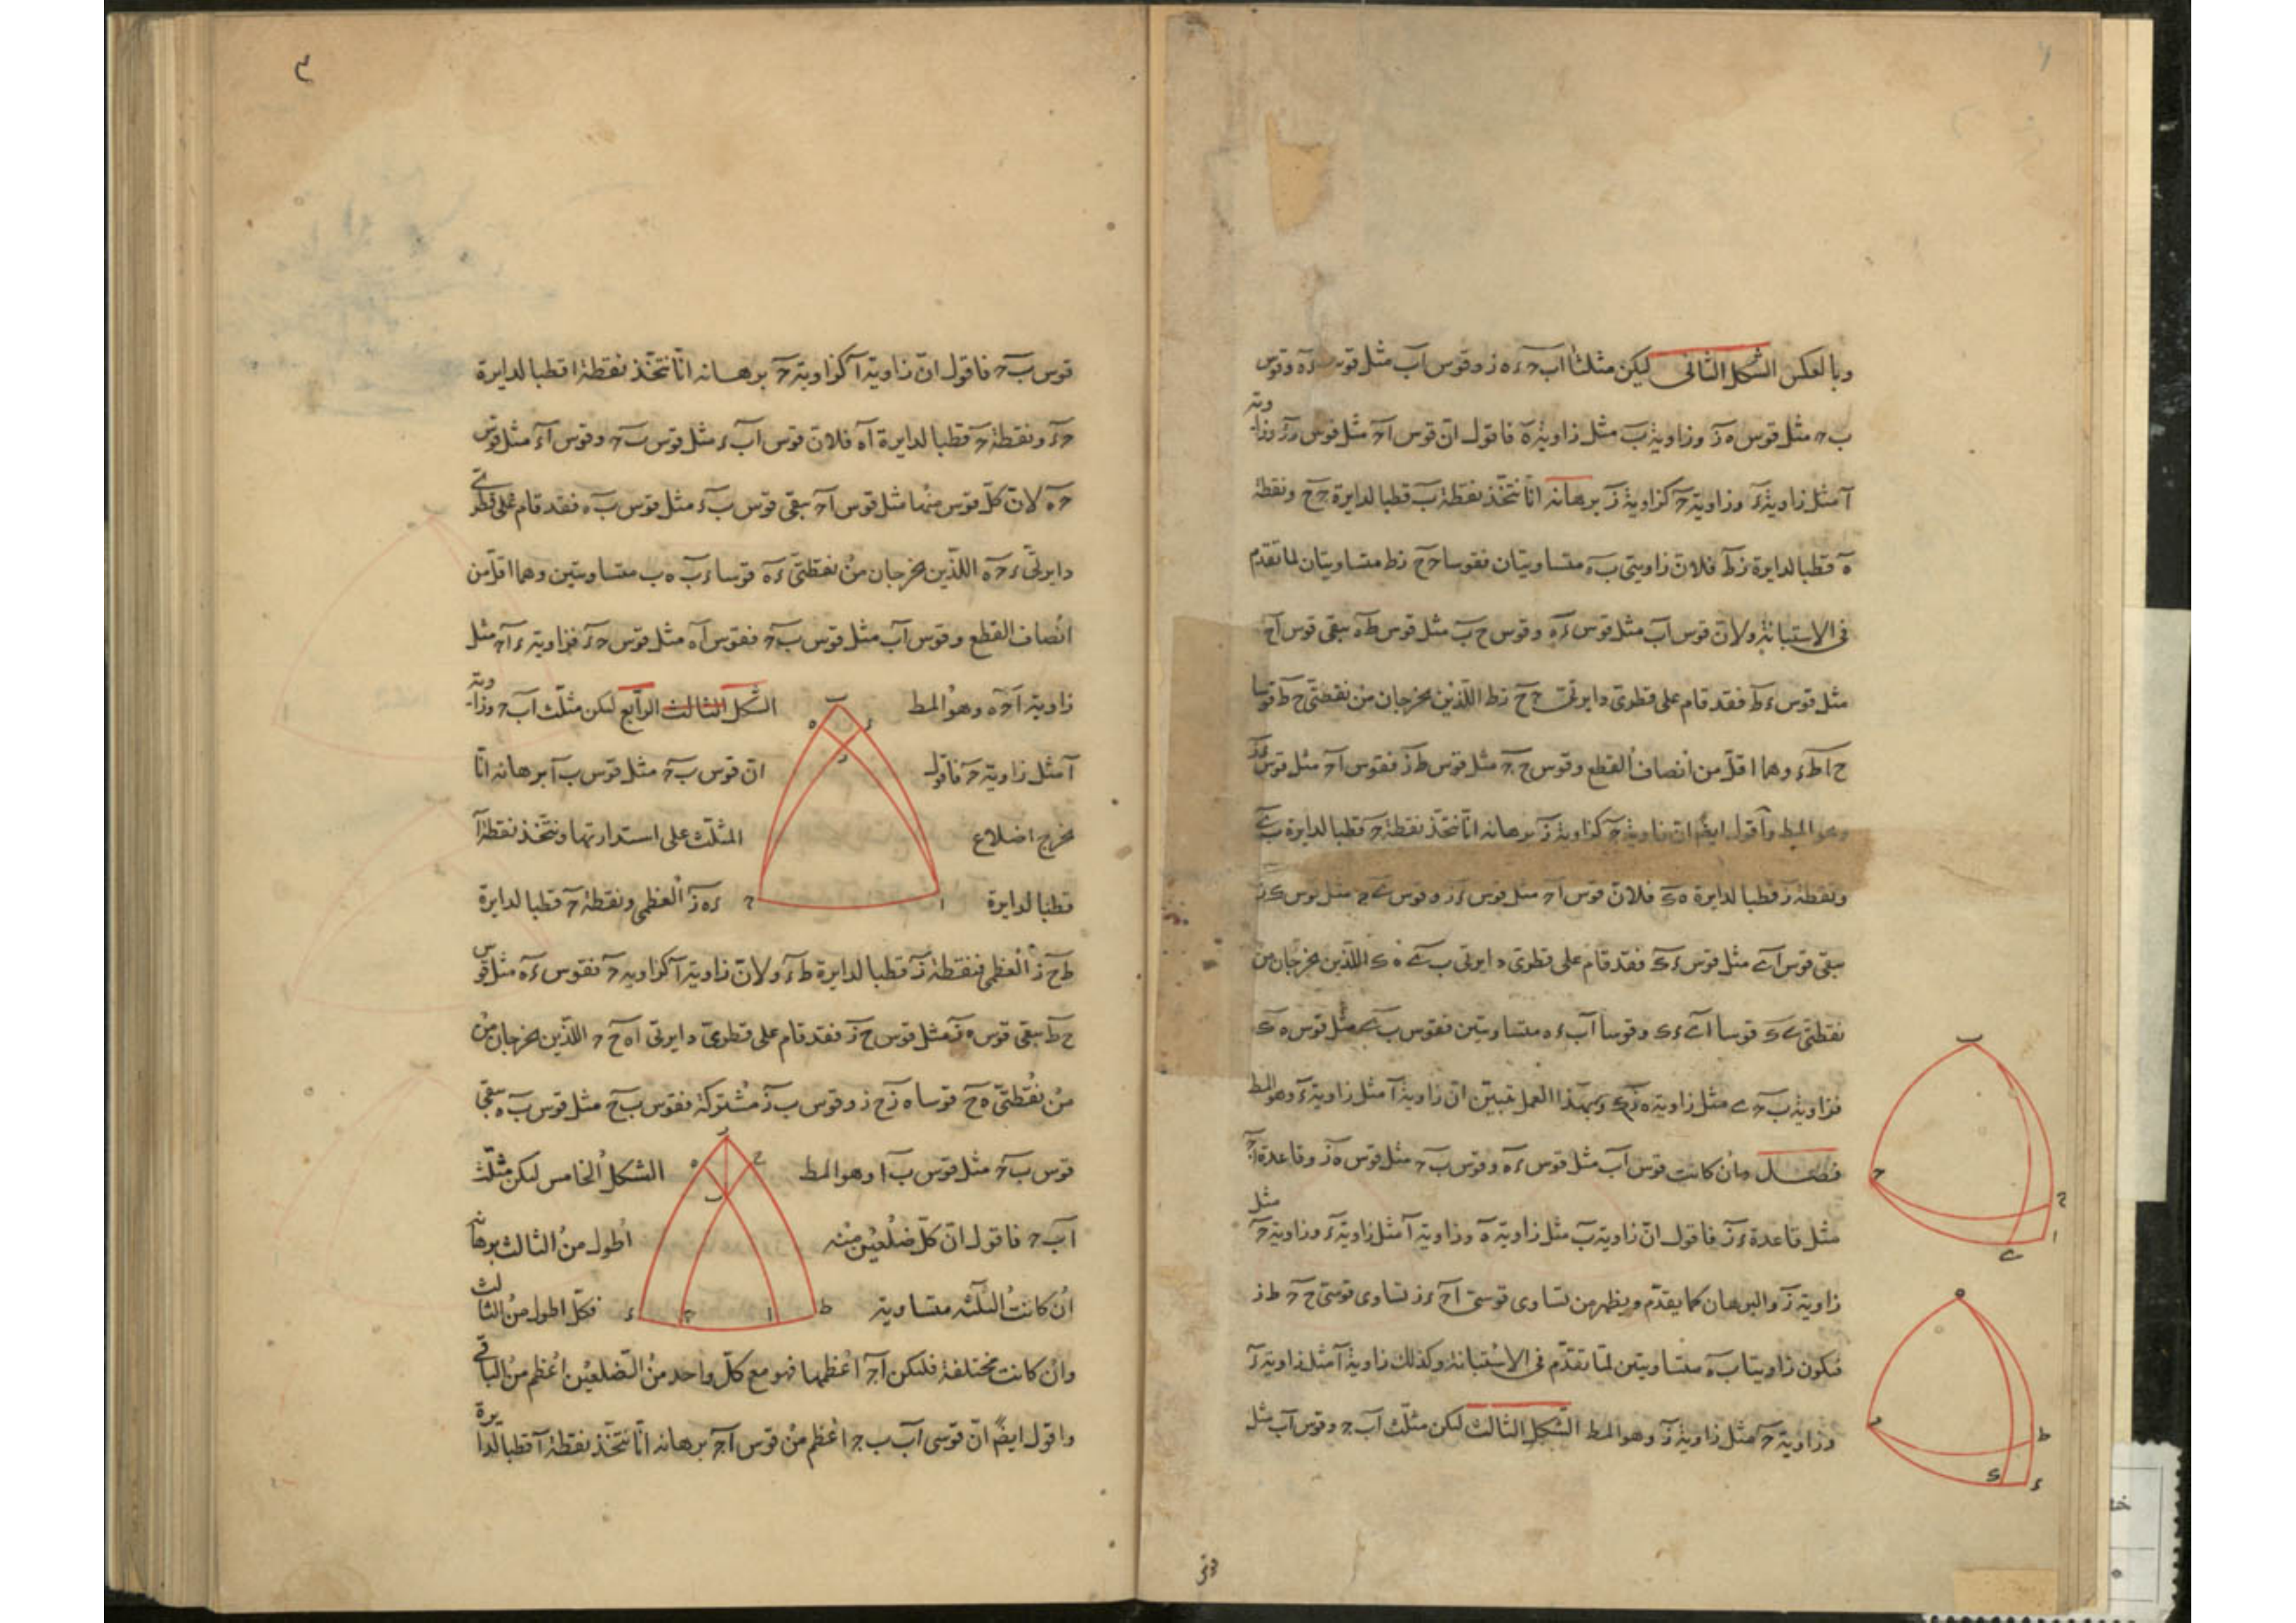 وبالعكس الشكل الثانى ليكن مثلثا اب ح ءه ز وقوس اب مثل قوس ءه وقوس
ب ح مثل قوس ه ز وزاوية ب مثل زاوية ه فاقول ان قوس اح مثل قوس ءز وزاوية
ا مثل زاوية ء وزاوية ح كزاوية ز برهانه انا نتخذ نقطة ب قطبا لدايرة ح ح ونقطة
ه قطبا لدايرة زط فلان زاويتى ب ه متساويتان فقوسا ح ح زط متساويتان لما تقدم
فى الاستبانة ولان قوس اب مثل قوس ءه وقوس ح ب مثل قوس طه يبقى قوس اح
مثل قوس ءط فقد قام على قطرى دايرتى ح ح زط اللذين يخرجان من نقطتى ح ط قوسا
ح ا طء وهما اقل من انصاف القطع وقوس ح ح مثل قوس ط ز فقوس اح مثل قوس ءز
وهو المط واقول ايضا ان زاوية ح كزاوية ز برهانه انا نتخذ نقطة ح قطبا لدايرة ب ى
ونقطة ز قطبا لدايرة ه ك فلان قوس اح مثل قوس ءز وقوس ى ح مثل قوس ك ز
يبقى قوس اى مثل قوس ءك فقد قام على قطرى دايرتى ب ى ه ك اللذين يخرجان من
نقطتى ى ك قوسا اى ءك وقوسا اب ءه متساويتين فقوس ب ى مثل قوس ه ك
فزاوية ب ح ى مثل زاوية ه ز ك وبهذا العمل تبين ان زاوية ا مثل زاوية ء وهو المط
فصل وان كانت قوس اب مثل قوس ءه وقوس ب ح مثل قوس ه ز وقاعدة اح
مثل قاعدة ءز فاقول ان زاوية ب مثل زاوية ه وزاوية ا مثل زاوية ء وزاوية ح مثل
زاوية ز والبرهان كما تقدم ويظهر من تساوى قوسى اح ءز تساوى قوسى ح ح ط ز
فيكون زاويتا ب ه متساويتين لما تقدم فى الاستبانة وكذلك زاوية ا مثل زاوية ز
وزاوية ح مثل زاوية ز وهو المط الشكل الثالث ليكن مثلث اب ح وقوس اب مثل
ب
ح
ح
ا
ى
ه
ز
ط
ك
ء
٣
قوس ب ح فاقول ان زاوية ا كزاوية ح برهانه انا نتخذ نقطة ا قطبا لدايرة
ح ء ونقطة ح قطبا لدايرة اه فلان قوس اب ء مثل قوس ب ح وقوس اء مثل قوس
ح ه لان كل قوس منهما مثل قوس اح يبقى قوس ب ء مثل قوس ب ه فقد قام على قطرى
دايرتى ء ح ه اللذين يخرجان من نقطتى ء ه قوسا ء ب ه ب متساويتين وهما اقل من
انصاف القطع وقوس اب مثل قوس ب ح فقوس اه مثل قوس ح ء فزاوية ء اح مثل
زاوية اح ه وهو المط الشكل الثالث الرابع ليكن مثلث اب ح وزاوية
ا مثل زاوية ح فاقول ان قوس ب ح مثل قوس ب ا برهانه انا
نخرج اضلاع المثلث على استدارتها ونتخذ نقطة ا
قطبا لدايرة ء ه ز العظمى ونقطة ح قطبا لدايرة
ط ح ز العظمى فنقطة ز قطبا لدايرة ط ء ولان زاوية ا كزاوية ح فقوس ء ه مثل قوس
ح ط يبقى قوس ه ز مثل قوس ح ز فقد قام على قطرى دايرتى اه ح ح اللذين يخرجان من
من نقطتى ه ح قوسا ه ز ح ز وقوس ب ز مشتركة فقوس ب ح مثل قوس ب ه يبقى
قوس ب ح مثل قوس ب ا وهو المط الشكل الخامس ليكن مثلث
اب ح فاقول ان كل ضلعين منه اطول من الثالث برهانه
ان كانت الثلثه متساوية فكل اطول من الثالث
وان كانت مختلفة فليكن اح اعظمها فهو مع كل واحد من الضلعين اعظم من الباقى
واقول ايضا ان قوسى اب ب ح اعظم من قوس اح برهانه انا نتخذ نقطة ا قطبا لدايرة
ب
ه
ء
ز
ح
ا
ز
ه
ح
ب
ء
ح
ا
ط